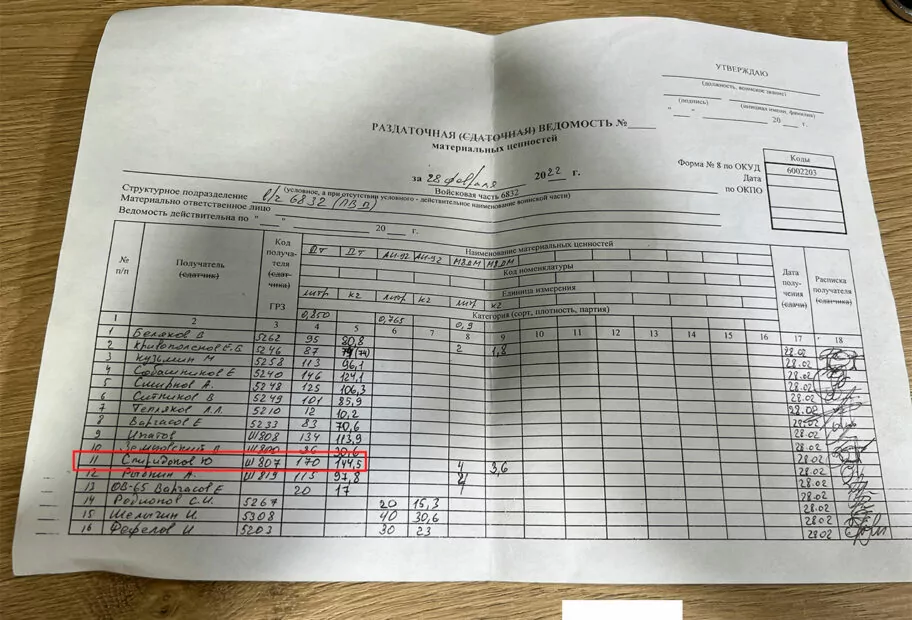 УТВЕРЖДАЮ
(должность, воинское звание)
(подпись) (инициал имени, фамилия)
"___" ______ 20 ___ г.
РАЗДАТОЧНАЯ (СДАТОЧНАЯ) ВЕДОМОСТЬ №____
материальных ценностей
за 28 февраля 2022 г.
Форма № 8 по ОКУД
Дата
по ОКПО
Коды
6002203
Войсковая часть 6832
Структурное подразделение в/ч 6832 (ПВД)
(условное, а при отсутствии условного - действительное наименование воинской части)
Материально ответственное лицо
Ведомость действительна по "___" 20 ___ г.
№ п/п
Получатель (сдатчик)
Код получателя (сдатчика)
ГРЗ
Наименование материальных ценностей
ДТ ДТ АИ-92 АИ-92 М8ДМ М8ДМ
Код номенклатуры
Единица измерения
литр кг литр кг литр кг
Категория (сорт, плотность, партия)
0,850 0,765 0,9
Дата получения (сдачи)
Расписка получателя (сдатчика)
1 2 3 4 5 6 7 8 9 10 11 12 13 14 15 16 17 18
1 Беляков В 5262 95 80,8 28.02
2 Кривополенов Е.Б 5246 87 (74) 2 1,8 28.02
3 Кузьмин М 5258 113 96,1 28.02
4 Собашников Е 5240 146 124,1 28.02
5 Смирнов А. 5248 125 106,3 28.02
6 Ситников В 5249 101 85,9 28.02
7 Тепляков 5210 12 10,2 28.02
8 Варгасов Е 5233 83 70,6 28.02
9 Ипатов Ш808 134 113,9 28.02
10 30,6 28.02
11 Спиридонов Ю Ш807 170 144,5 4 3,6 28.02
12 Ш819 115 97,8 28.02
13 ОВ-65 Варгасов Е 20 17 28.02
14 Родионов С.И. 5267 20 15,3 28.02
15 Шелыгин И. 5308 40 30,6 28.02
16 Фефелов И 5203 30 23 28.02